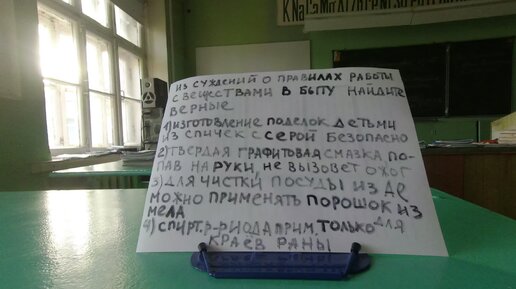 KNaCaMgAlZnFe
ИЗ СУЖДЕНИЙ О ПРАВИЛАХ РАБОТЫ
С ВЕЩЕСТВАМИ В БЫТУ НАЙДИТЕ
ВЕРНЫЕ
1) ИЗГОТОВЛЕНИЕ ПОДЕЛОК ДЕТЬМИ
ИЗ СПИЧЕК С СЕРОЙ БЕЗОПАСНО
2) ТВЕРДАЯ ГРАФИТОВАЯ СМАЗКА ПО-
ПАВ НА РУКИ, НЕ ВЫЗОВЕТ ОЖОГ
3) ДЛЯ ЧИСТКИ ПОСУДЫ ИЗ Ag
МОЖНО ПРИМЕНЯТЬ ПОРОШОК ИЗ
МЕЛА
4) СПИРТ. Р-Р ИОДА ПРИМ. ТОЛЬКО ДЛЯ
КРАЁВ РАНЫ